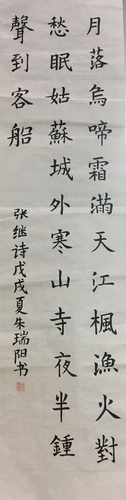 月落烏啼霜滿天江楓漁火對
愁眠姑蘇城外寒山寺夜半鍾
聲到客船
张继诗戊戌夏朱瑞阳书